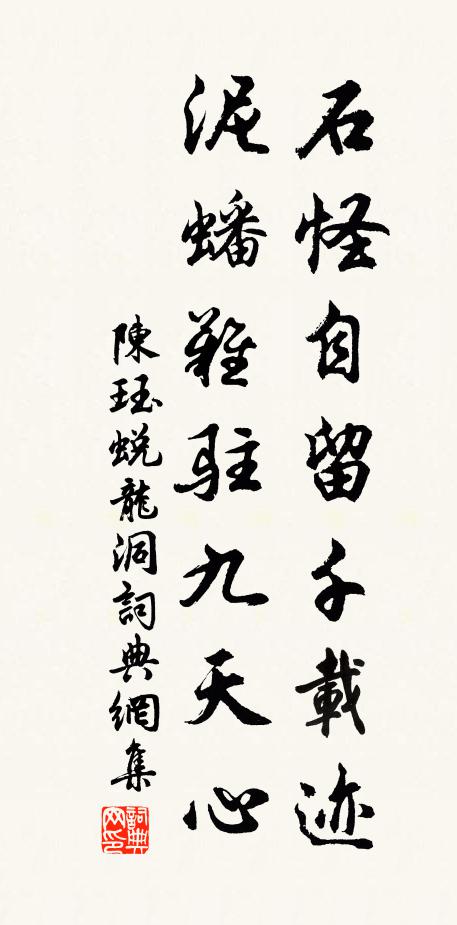 石怪自留千載迹
泥蟠難駐九天心
陳珏蛻龍洞詞典網集
詞典网印